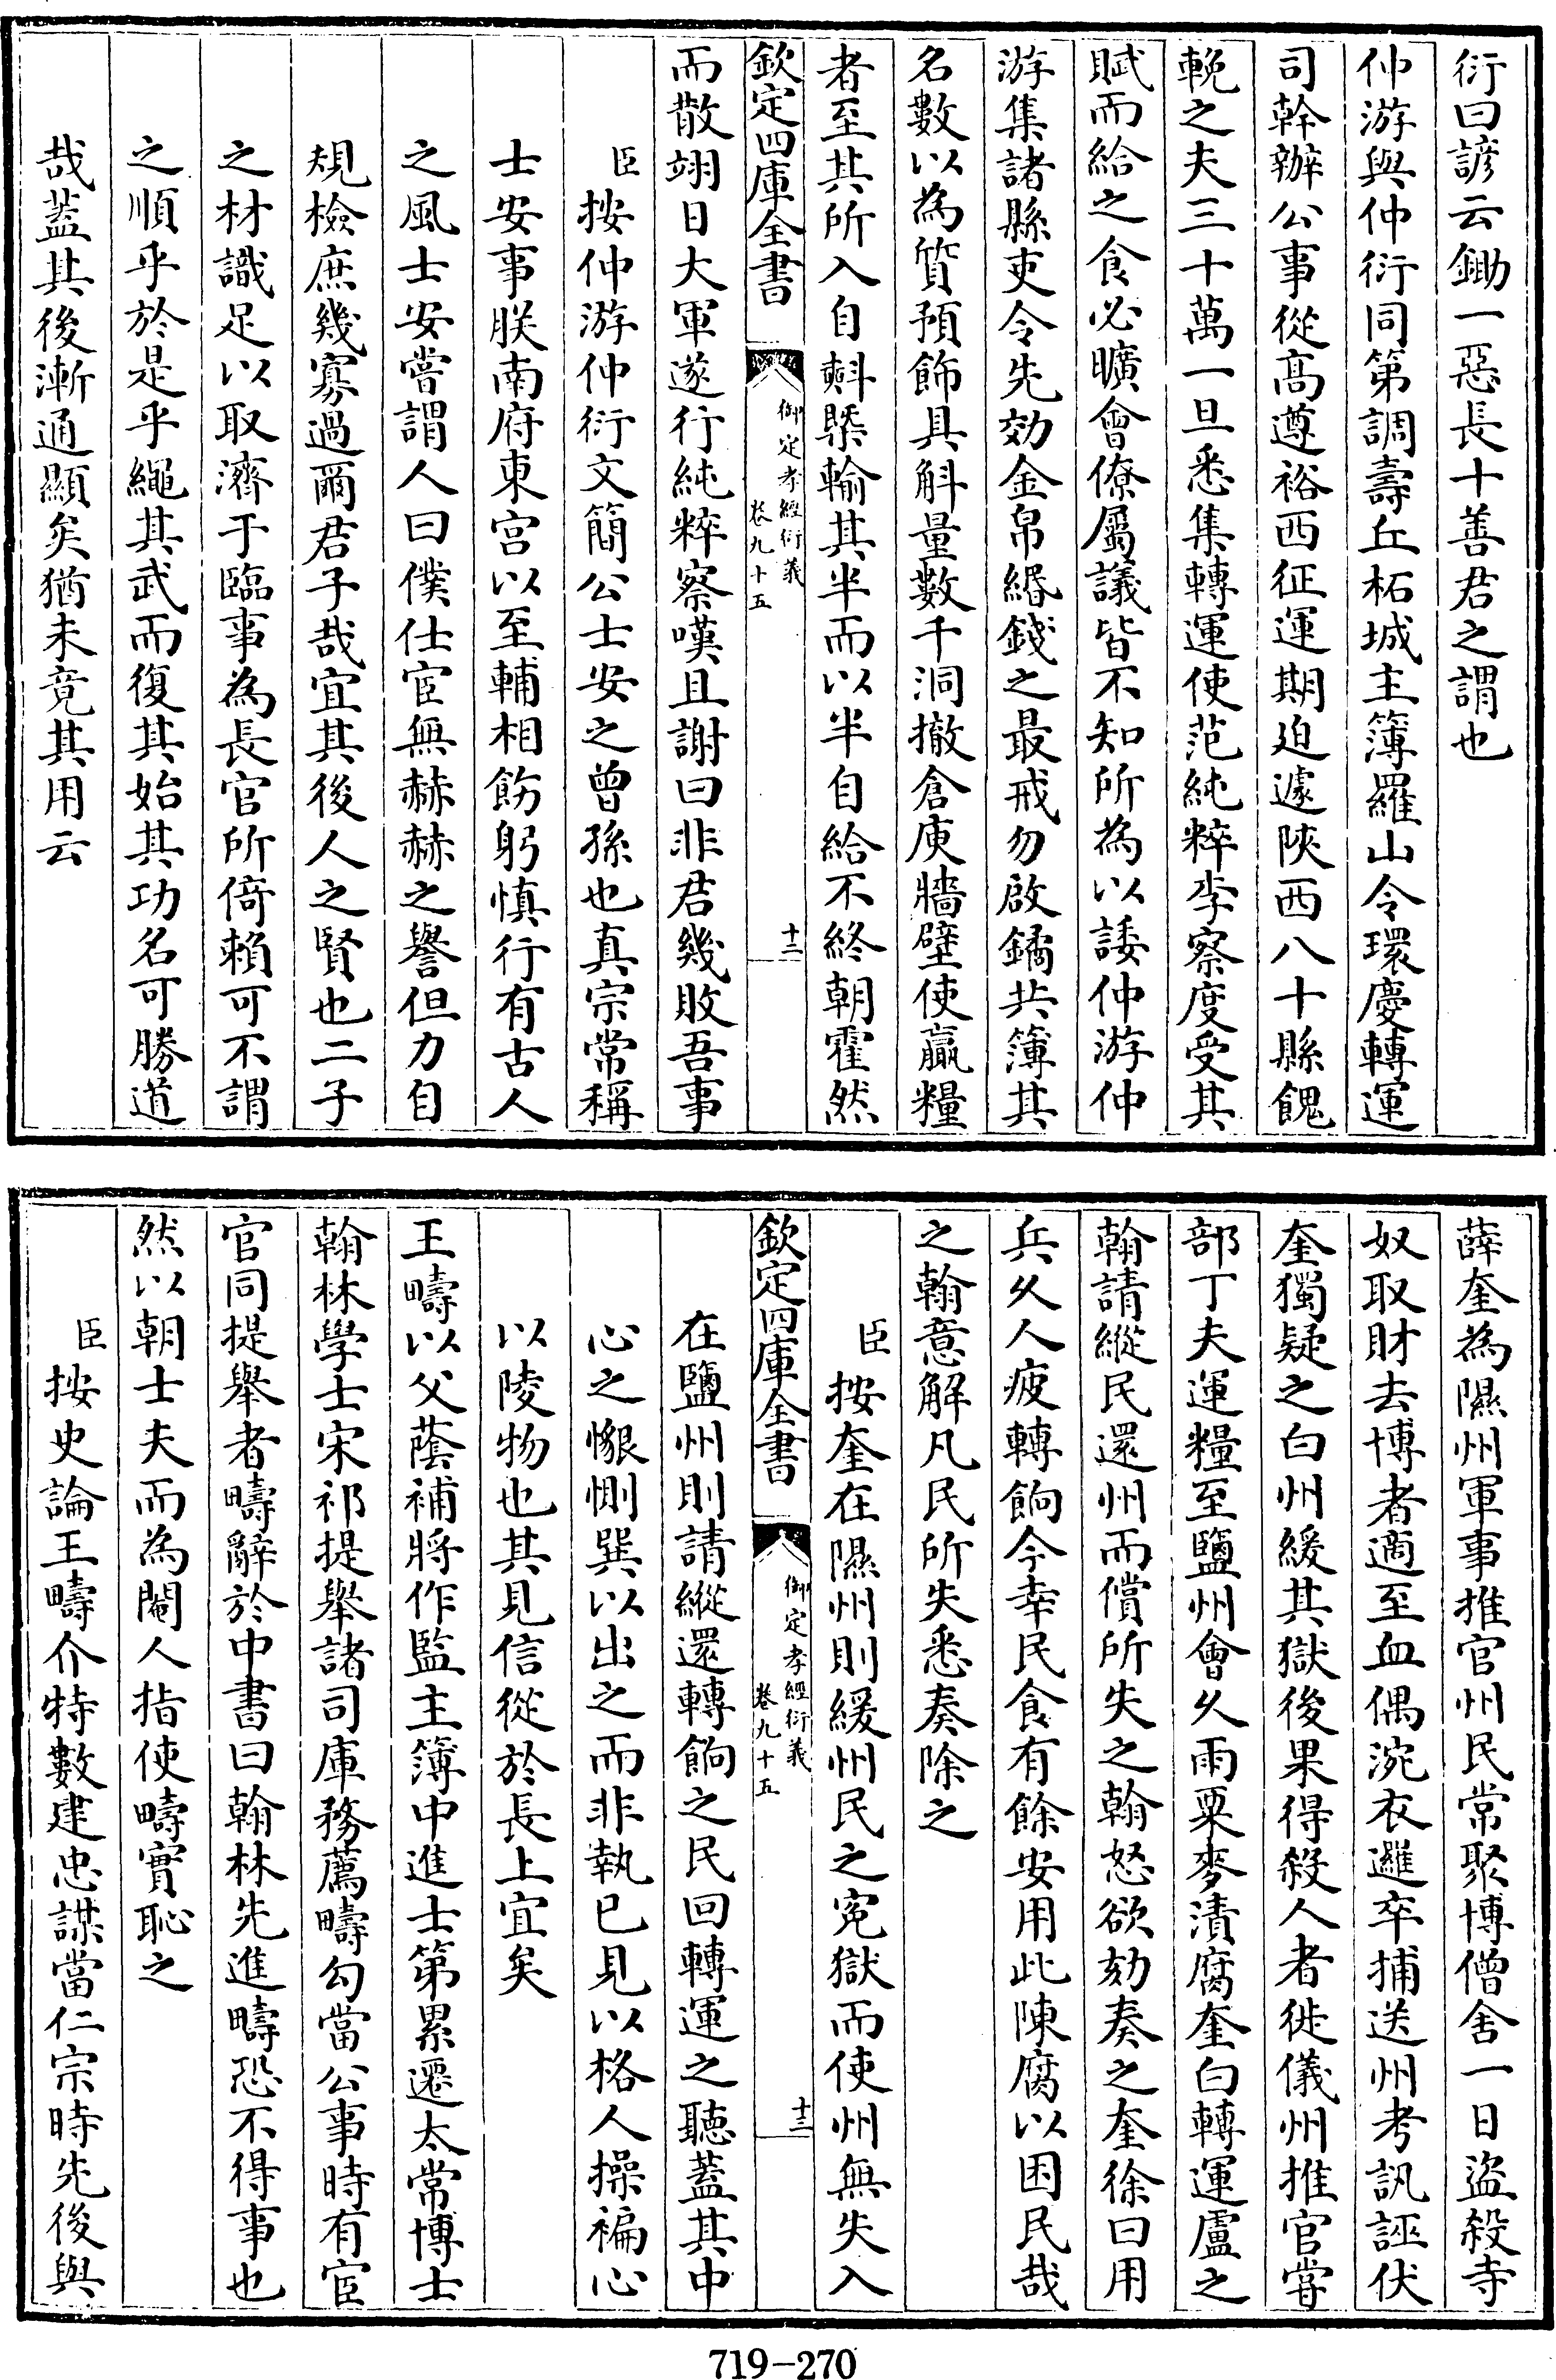 衍曰諺云鋤一惡長十善君之謂也
仲游與仲衍同第調壽丘柘城主簿羅山令環慶轉運
司幹辦公事從髙遵裕西征運期迫遽陜西八十縣餽
輓之夫三十萬一旦悉集轉運使范純粹李察度受其
賦而給之食必曠會僚屬議皆不知所為以諉仲游仲
游集諸縣吏令先効金帛緡錢之最戒勿啟鐍共簿其
名數以為質預飾具斛量數千洞撤倉庾牆壁使贏糧
者至其所入自㪺槩輸其半而以半自給不終朝霍然
欽定四庫全書
御定孝經衍義
卷九十五
十二
而散翊日大軍遂行純粹察嘆且謝曰非君幾敗吾事
臣按仲游仲衍文簡公士安之曾孫也真宗常稱
士安事朕南府東宫以至輔相飭躬慎行有古人
之風士安嘗謂人曰僕仕宦無赫赫之譽但力自
規檢庶幾寡過爾君子哉宜其後人之賢也二子
之材識足以取濟于臨事為長官所倚賴可不謂
之順乎於是乎繩其武而復其始其功名可勝道
哉蓋其後漸通顯矣猶未竟其用云
薛奎為隰州軍事推官州民常聚博僧舍一日盜殺寺
奴取財去博者適至血偶涴衣邏卒捕送州考訊誣伏
奎獨疑之白州緩其獄後果得殺人者徙儀州推官嘗
部丁夫運糧至鹽州會久雨粟麥漬腐奎白轉運盧之
翰請縱民還州而償所失之翰怒欲劾奏之奎徐曰用
兵久人疲轉餉今幸民食有餘安用此陳腐以困民哉
之翰意解凡民所失悉奏除之
臣按奎在隰州則緩州民之寃獄而使州無失入
欽定四庫全書
御定孝經衍義
卷九十五
十三
在鹽州則請縱還轉餉之民回轉運之聽蓋其中
心之懇惻巽以出之而非執已見以格人操褊心
以陵物也其見信從於長上宜矣
王疇以父蔭補將作監主簿中進士第累遷太常博士
翰林學士宋祁提舉諸司庫務薦疇勾當公事時有宦
官同提舉者疇辭於中書曰翰林先進疇恐不得事也
然以朝士夫而為閹人指使疇實恥之
臣按史論王疇介特數建忠謀當仁宗時先後與
719-270